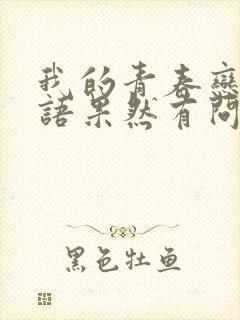 我的青春戀
語果然有問
黑色牡鱼